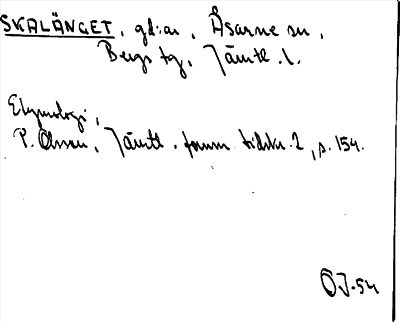 SKALÄNGET, gd:ar, Åsarne sn,
Bergs tg, Jämtl. l.
Etymologi,
P. Olsson, Jämtl. fornm. tidskr. 2, s. 154.
ÖJ-54